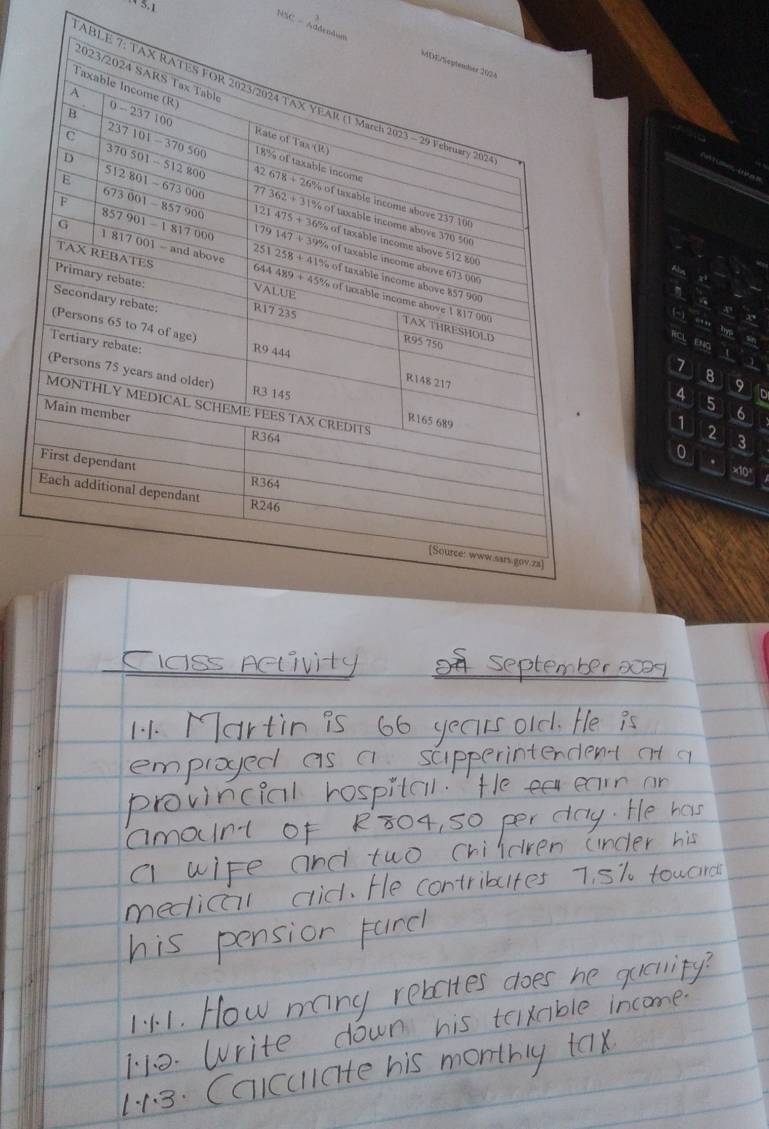 3
NSC – Addendum
MDE/September 2024
TABLE 7: TAX RATES FOR 2023/2024 TAX YEAR (1 March 2023 – 29 February 2024)
2023/2024 SARS Tax Table
Taxable Income (R) Rate of Tax (R)
A 0 – 237 100 18% of taxable income
B 237 101 – 370 500 42 678 + 26% of taxable income above 237 100
C 370 501 – 512 800 77 362 + 31% of taxable income above 370 500
D 512 801 – 673 000 121 475 + 36% of taxable income above 512 800
E 673 001 – 857 900 179 147 + 39% of taxable income above 673 000
F 857 901 – 1 817 000 251 258 + 41% of taxable income above 857 900
G 1 817 001 – and above 644 489 + 45% of taxable income above 1 817 000
TAX REBATES VALUE TAX THRESHOLD
Primary rebate: R17 235 R95 750
Secondary rebate:
(Persons 65 to 74 of age) R9 444 R148 217
Tertiary rebate:
(Persons 75 years and older) R3 145 R165 689
MONTHLY MEDICAL SCHEME FEES TAX CREDITS
Main member R364
First dependant R364
Each additional dependant R246
[Source: www.sars.gov.za]
Abs
(–)
hyp
sin
RCL
ENG
7 8 9
4 5 6
1 2 3
0 . ×10ˣ
Class Activity September
1.1. Martin is 66 years old. He is
employed as a supperintendent at a
provincial hospital. He earn an
amount of R804,50 per day. He has
a wife and two children under his
medical aid. He contributes 7,5% towards
his pension fund
1.1.1. How many rebates does he qualify?
1.1.2. Write down his taxable income.
1.1.3. Calculate his monthly tax.